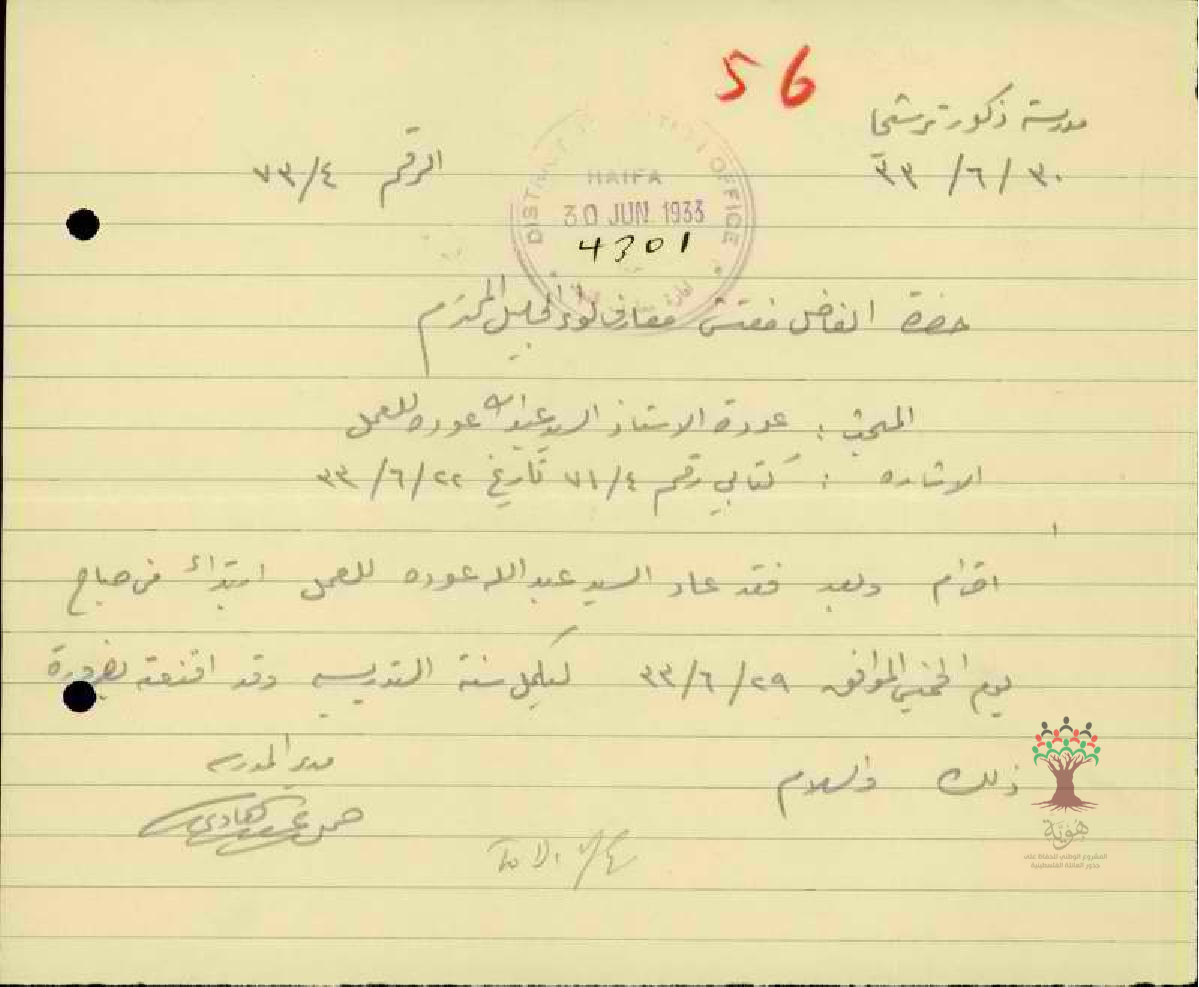 56
مدرسة ذكور ترشيحا
٣٠/٦/٣٣
الرقم ٧٣/٤
DISTRICT OFFICE
HAIFA
30 JUN 1933
4301
حضرة الفاضل مفتش معارف لواء الجليل المحترم
المبحث : عودة الاستاذ السيد عبدالله عوده للعمل
الاشاره : كتابي رقم ٧١/٤ تاريخ ٢٢/٦/٣٣
احترام وبعد فقد عاد السيد عبد الله عوده للعمل ابتداءً من صباح
يوم الخميس الموافق ٢٩/٦/٣٣ ليكمل سنة التدريس وقد اقنعته بضرورة
ذلك والسلام
مدير المدرسه
هوية
المشروع الوطني للحفاظ على
جذور العائلة الفلسطينية